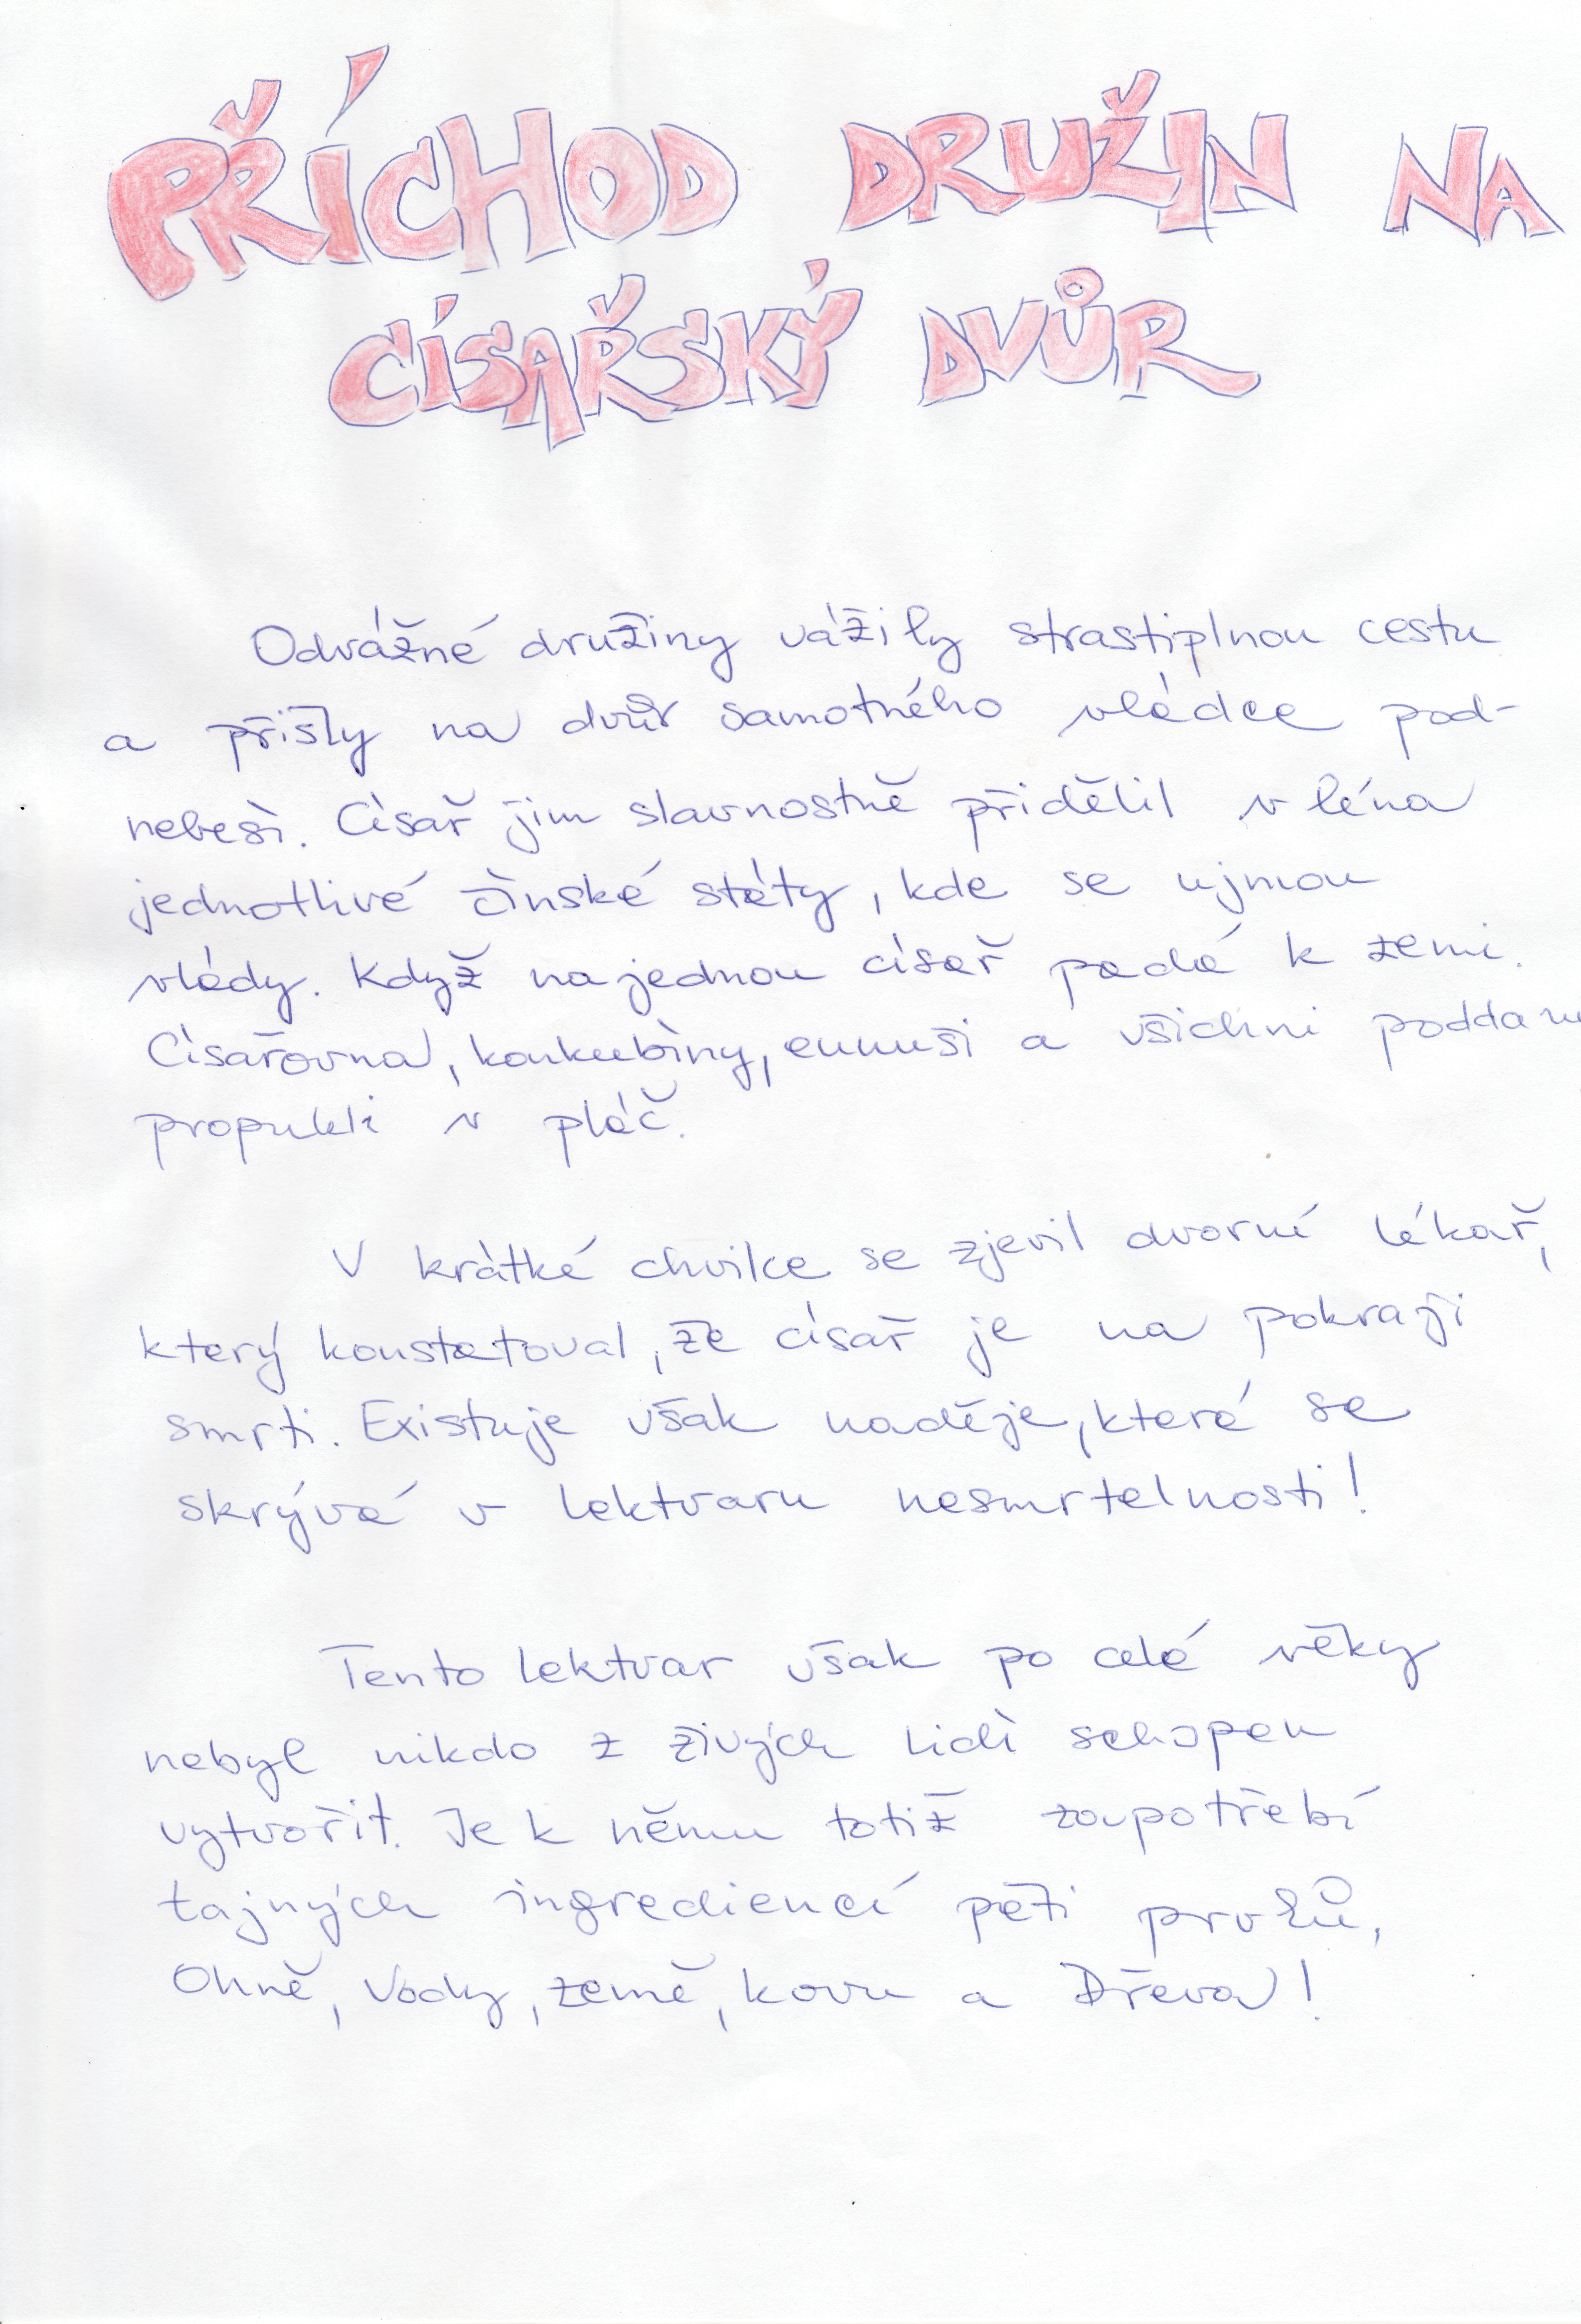 PŘÍCHOD DRUŽIN NA
CÍSAŘSKÝ DVŮR
Odvážné družiny vážily strastiplnou cestu
a přišly na dvůr samotného vládce pod-
nebesí. Císař jim slavnostně přidělil v léna
jednotlivé čínské státy, kde se ujmou
vlády. Když najednou císař padá k zemi.
Císařovna, konkubíny, eunuši a všichni poddaní
propukli v pláč.
V krátké chvilce se zjevil dvorní lékař,
který konstatoval, že císař je na pokraji
smrti. Existuje však naděje, která se
skrývá v lektvaru nesmrtelnosti!
Tento lektvar však po celé věky
nebyl nikdo z živých lidí schopen
vytvořit. Je k němu totiž zapotřebí
tajných ingrediencí pěti prvků,
Ohně, Vody, země, kovu a Dřeva!